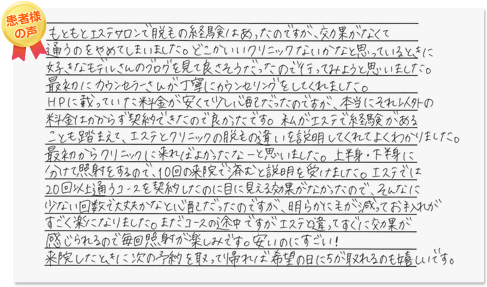 患者様
の声
もともとエステサロンで脱毛の経験はあったのですが、効果がなくて
通うのをやめてしまいました。どこかいいクリニックないかなと思っているときに
好きなモデルさんのブログを見て良さそうだったので行ってみようと思いました。
最初にカウンセラーさんが丁寧にカウンセリングをしてくれました。
HPに載っていた料金が安くて少し心配だったのですが、本当にそれ以外の
料金はかからず契約できたので良かったです。私がエステで経験がある
ことも踏まえて、エステとクリニックの脱毛の違いを説明してくれてよくわかりました。
最初からクリニックに来ればよかったなーと思いました。上半身・下半身に
分けて照射をするので、10回の来院で済むと説明を受けました。エステでは
20回以上通うコースを契約したのに目に見える効果がなかったので、そんなに
少ない回数で大丈夫かなと心配だったのですが、明らかに毛が減ってお手入れが
すごく楽になりました。まだコースの途中ですがエステと違ってすぐに効果が
感じられるので毎回照射が楽しみです。安いのにすごい!
来院したときに次の予約を取って帰れば希望の日にちが取れるのも嬉しいです。